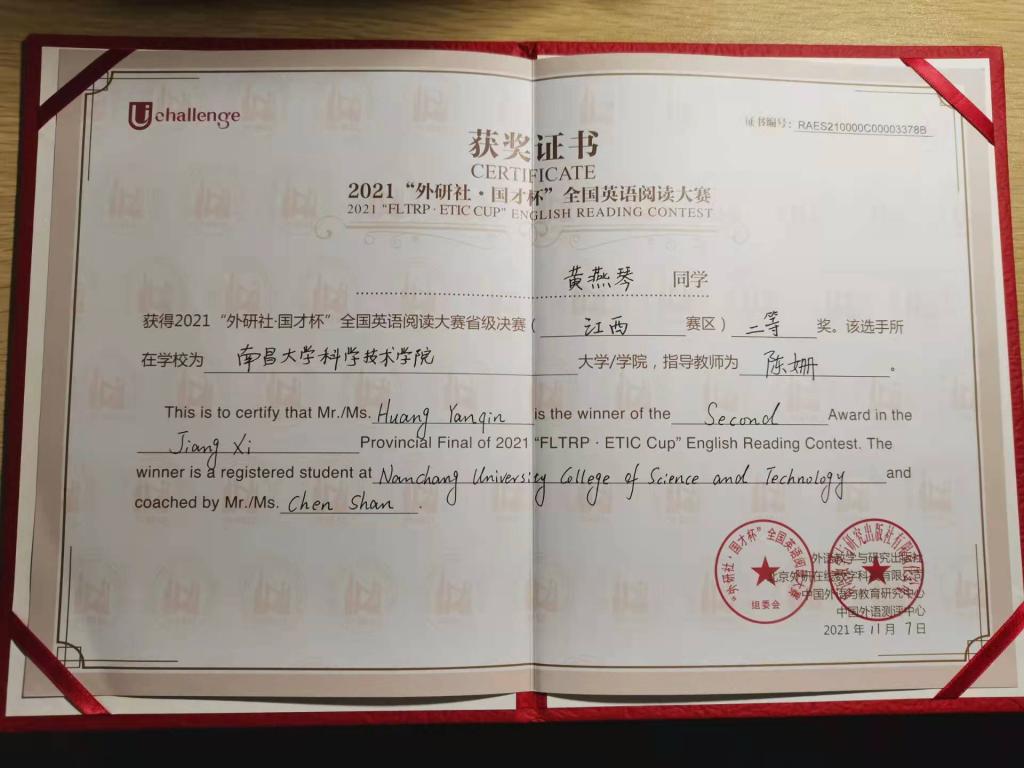 Uchallenge
证书编号：RAES210000C00003378B
获奖证书
CERTIFICATE
2021“外研社·国才杯”全国英语阅读大赛
2021 “FLTRP · ETIC CUP” ENGLISH READING CONTEST
黄燕琴 同学
获得2021“外研社·国才杯”全国英语阅读大赛省级决赛（ 江西 赛区） 二等 奖。该选手所
在学校为 南昌大学科学技术学院 大学/学院，指导教师为 陈姗 。
This is to certify that Mr./Ms. Huang Yanqin is the winner of the Second Award in the
Jiang Xi Provincial Final of 2021 “FLTRP · ETIC Cup” English Reading Contest. The
winner is a registered student at Nanchang University College of Science and Technology and
coached by Mr./Ms. Chen Shan.
“外研社·国才杯”全国英语阅读大赛
组委会
外语教学与研究出版社
北京外研在线数字科技有限公司
中国外语与教育研究中心
中国外语测评中心
2021年 11月 7日